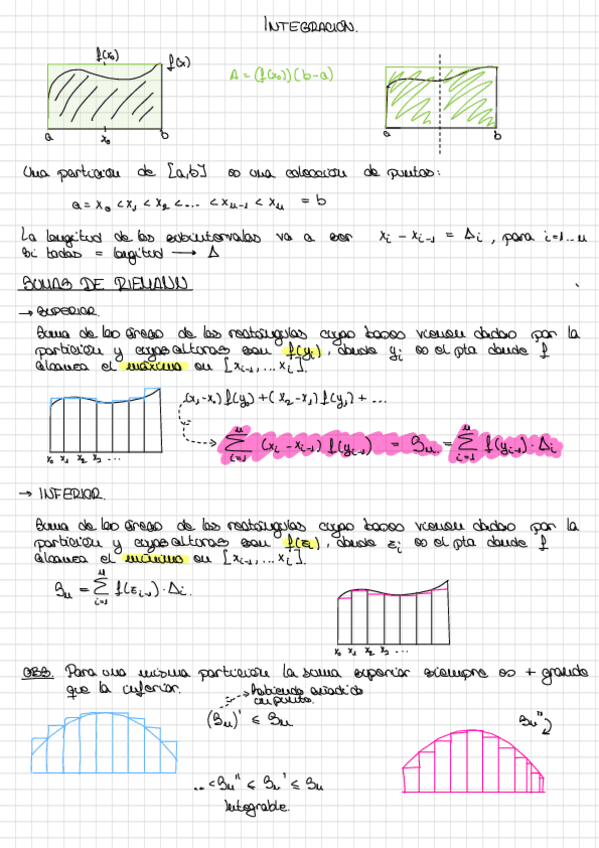 INTEGRACIÓN.
f(x₀) f(x)
A = (f(x₀))(b-a)
a x₀ b
a b
Una partición de [a,b] es una colección de puntos:
a = x₀ < x₁ < x₂ < ... < xₙ₋₁ < xₙ = b
La longitud de los subintervalos va a ser xᵢ - xᵢ₋₁ = Δᵢ, para i=1...n
Si todas = longitud → Δ
SUMAS DE RIEMANN
→ SUPERIOR.
Suma de las áreas de los rectángulos cuyas bases vienen dadas por la
partición y cuyas alturas son f(yᵢ), donde yᵢ es el pto donde f
alcanza el máximo en [xᵢ₋₁, ... xᵢ].
(x₁-x₀) f(y₀) + (x₂-x₁) f(y₁) + ...
∑ᵢ₌₁ⁿ (xᵢ - xᵢ₋₁) f(yᵢ₋₁) = Sₙ = ∑ᵢ₌₁ⁿ f(yᵢ₋₁)·Δᵢ
x₀ x₁ x₂ x₃ ...
→ INFERIOR.
Suma de las áreas de los rectángulos cuyas bases vienen dadas por la
partición y cuyas alturas son f(zᵢ), donde zᵢ es el pto donde f
alcanza el mínimo en [xᵢ₋₁, ... xᵢ].
Sₙ = ∑ᵢ₌₁ⁿ f(zᵢ₋₁)·Δᵢ.
x₀ x₁ x₂ x₃ ...
OBS. Para una misma partición la suma superior siempre es + grande
que la inferior.
Habiendo añadido
un punto.
(Sₙ)' ≤ Sₙ
Sₙ''
... < Sₙ'' ≤ Sₙ' ≤ Sₙ
Integrable.